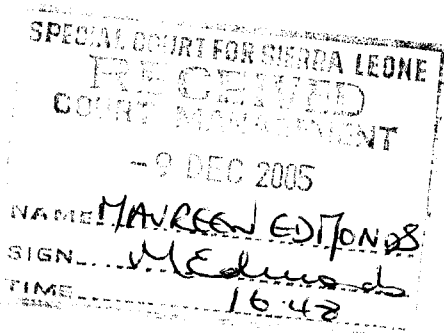 SPECIAL COURT FOR SIERRA LEONE
RECEIVED
COURT MANAGEMENT
- 9 DEC 2005
NAME MAUREEN EDMONDS
SIGN MEdmonds
TIME 16:42